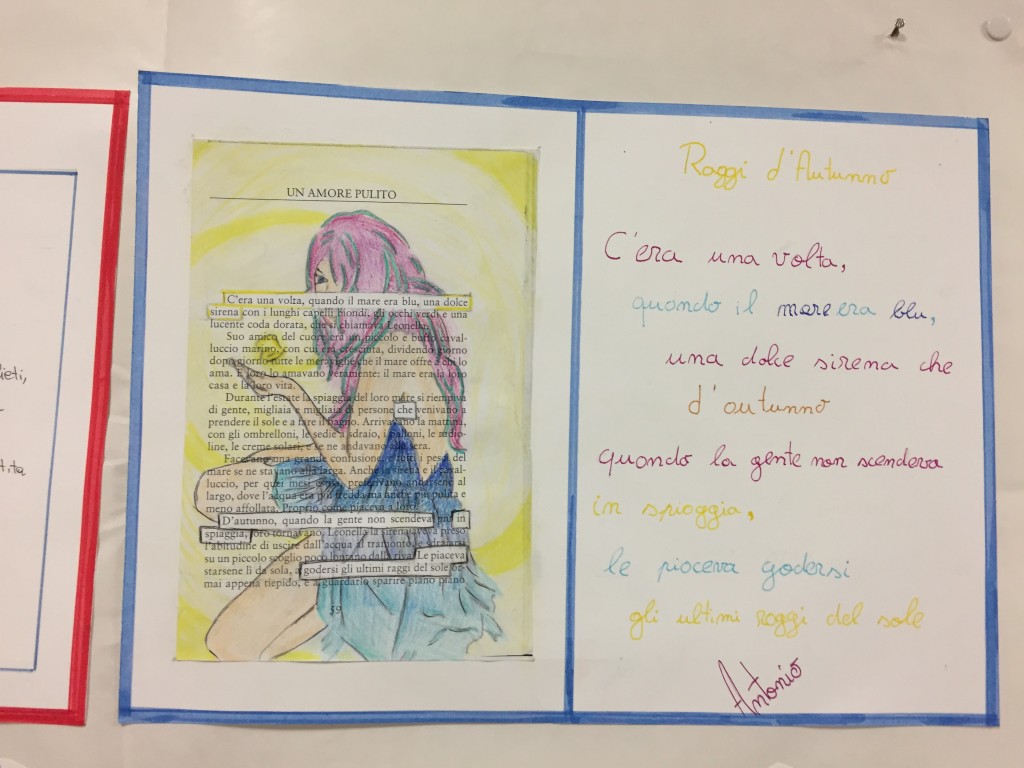 ieti,
tita
UN AMORE PULITO
C'era una volta, quando il mare era blu, una dolce
sirena con i lunghi capelli biondi, gli occhi verdi e una
lucente coda dorata, che si chiamava Leonella.
Suo amico del cuore era un piccolo e buffo caval-
luccio marino, con cui era cresciuta, dividendo giorno
dopo giorno tutte le meraviglie che il mare offre a chi lo
ama. E loro lo amavano veramente: il mare era la loro
casa e la loro vita.
Durante l'estate la spiaggia del loro mare si riempiva
di gente, migliaia e migliaia di persone che venivano a
prendere il sole e a fare il bagno. Arrivavano la mattina,
con gli ombrelloni, le sedie a sdraio, i palloni, le radio-
line, le creme solari, e se ne andavano alla sera.
Facevano una grande confusione e tutti i pesci del
mare se ne stavano alla larga. Anche la sirena e il caval-
luccio, per quei mesi estivi, preferivano andarsene al
largo, dove l'acqua era più fredda ma anche più pulita e
meno affollata. Proprio come piaceva a loro.
D'autunno, quando la gente non scendeva più in
spiaggia, loro tornavano. Leonella la sirena aveva preso
l'abitudine di uscire dall'acqua al tramonto e sdraiarsi
su un piccolo scoglio poco lontano dalla riva. Le piaceva
starsene lì da sola, a godersi gli ultimi raggi del sole
mai appena tiepido, e a guardarlo sparire piano piano
59
Raggi d'Autunno
C'era una volta,
quando il mare era blu,
una dolce sirena che
d'autunno
quando la gente non scendeva
in spiaggia,
le piaceva godersi
gli ultimi raggi del sole
Antonio